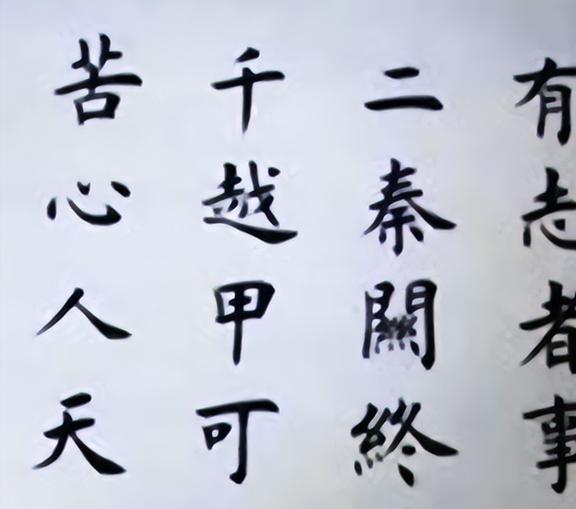 有志者事
二秦關終
千越甲可
苦心人天